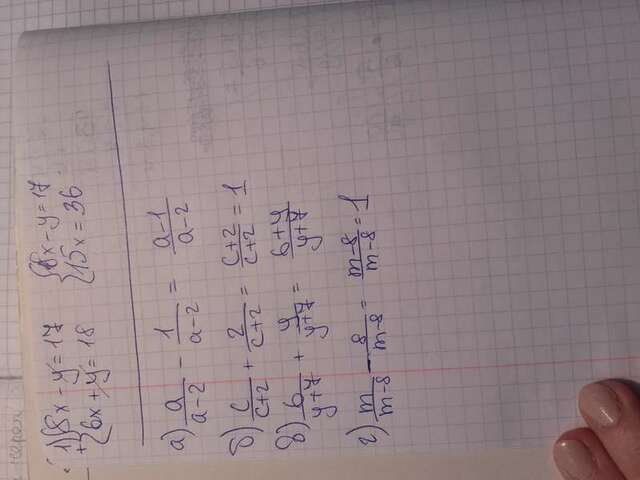 1) {8x - y = 17 {8x - y = 17
+ {6x + y = 18 {15x = 36
а) a/(a-2) - 1/(a-2) = (a-1)/(a-2)
б) c/(c+2) + 2/(c+2) = (c+2)/(c+2) = 1
в) 6/(y+7) + y/(y+7) = (6+y)/(y+7)
г) m/(m-8) - 8/(m-8) = (m-8)/(m-8) = 1